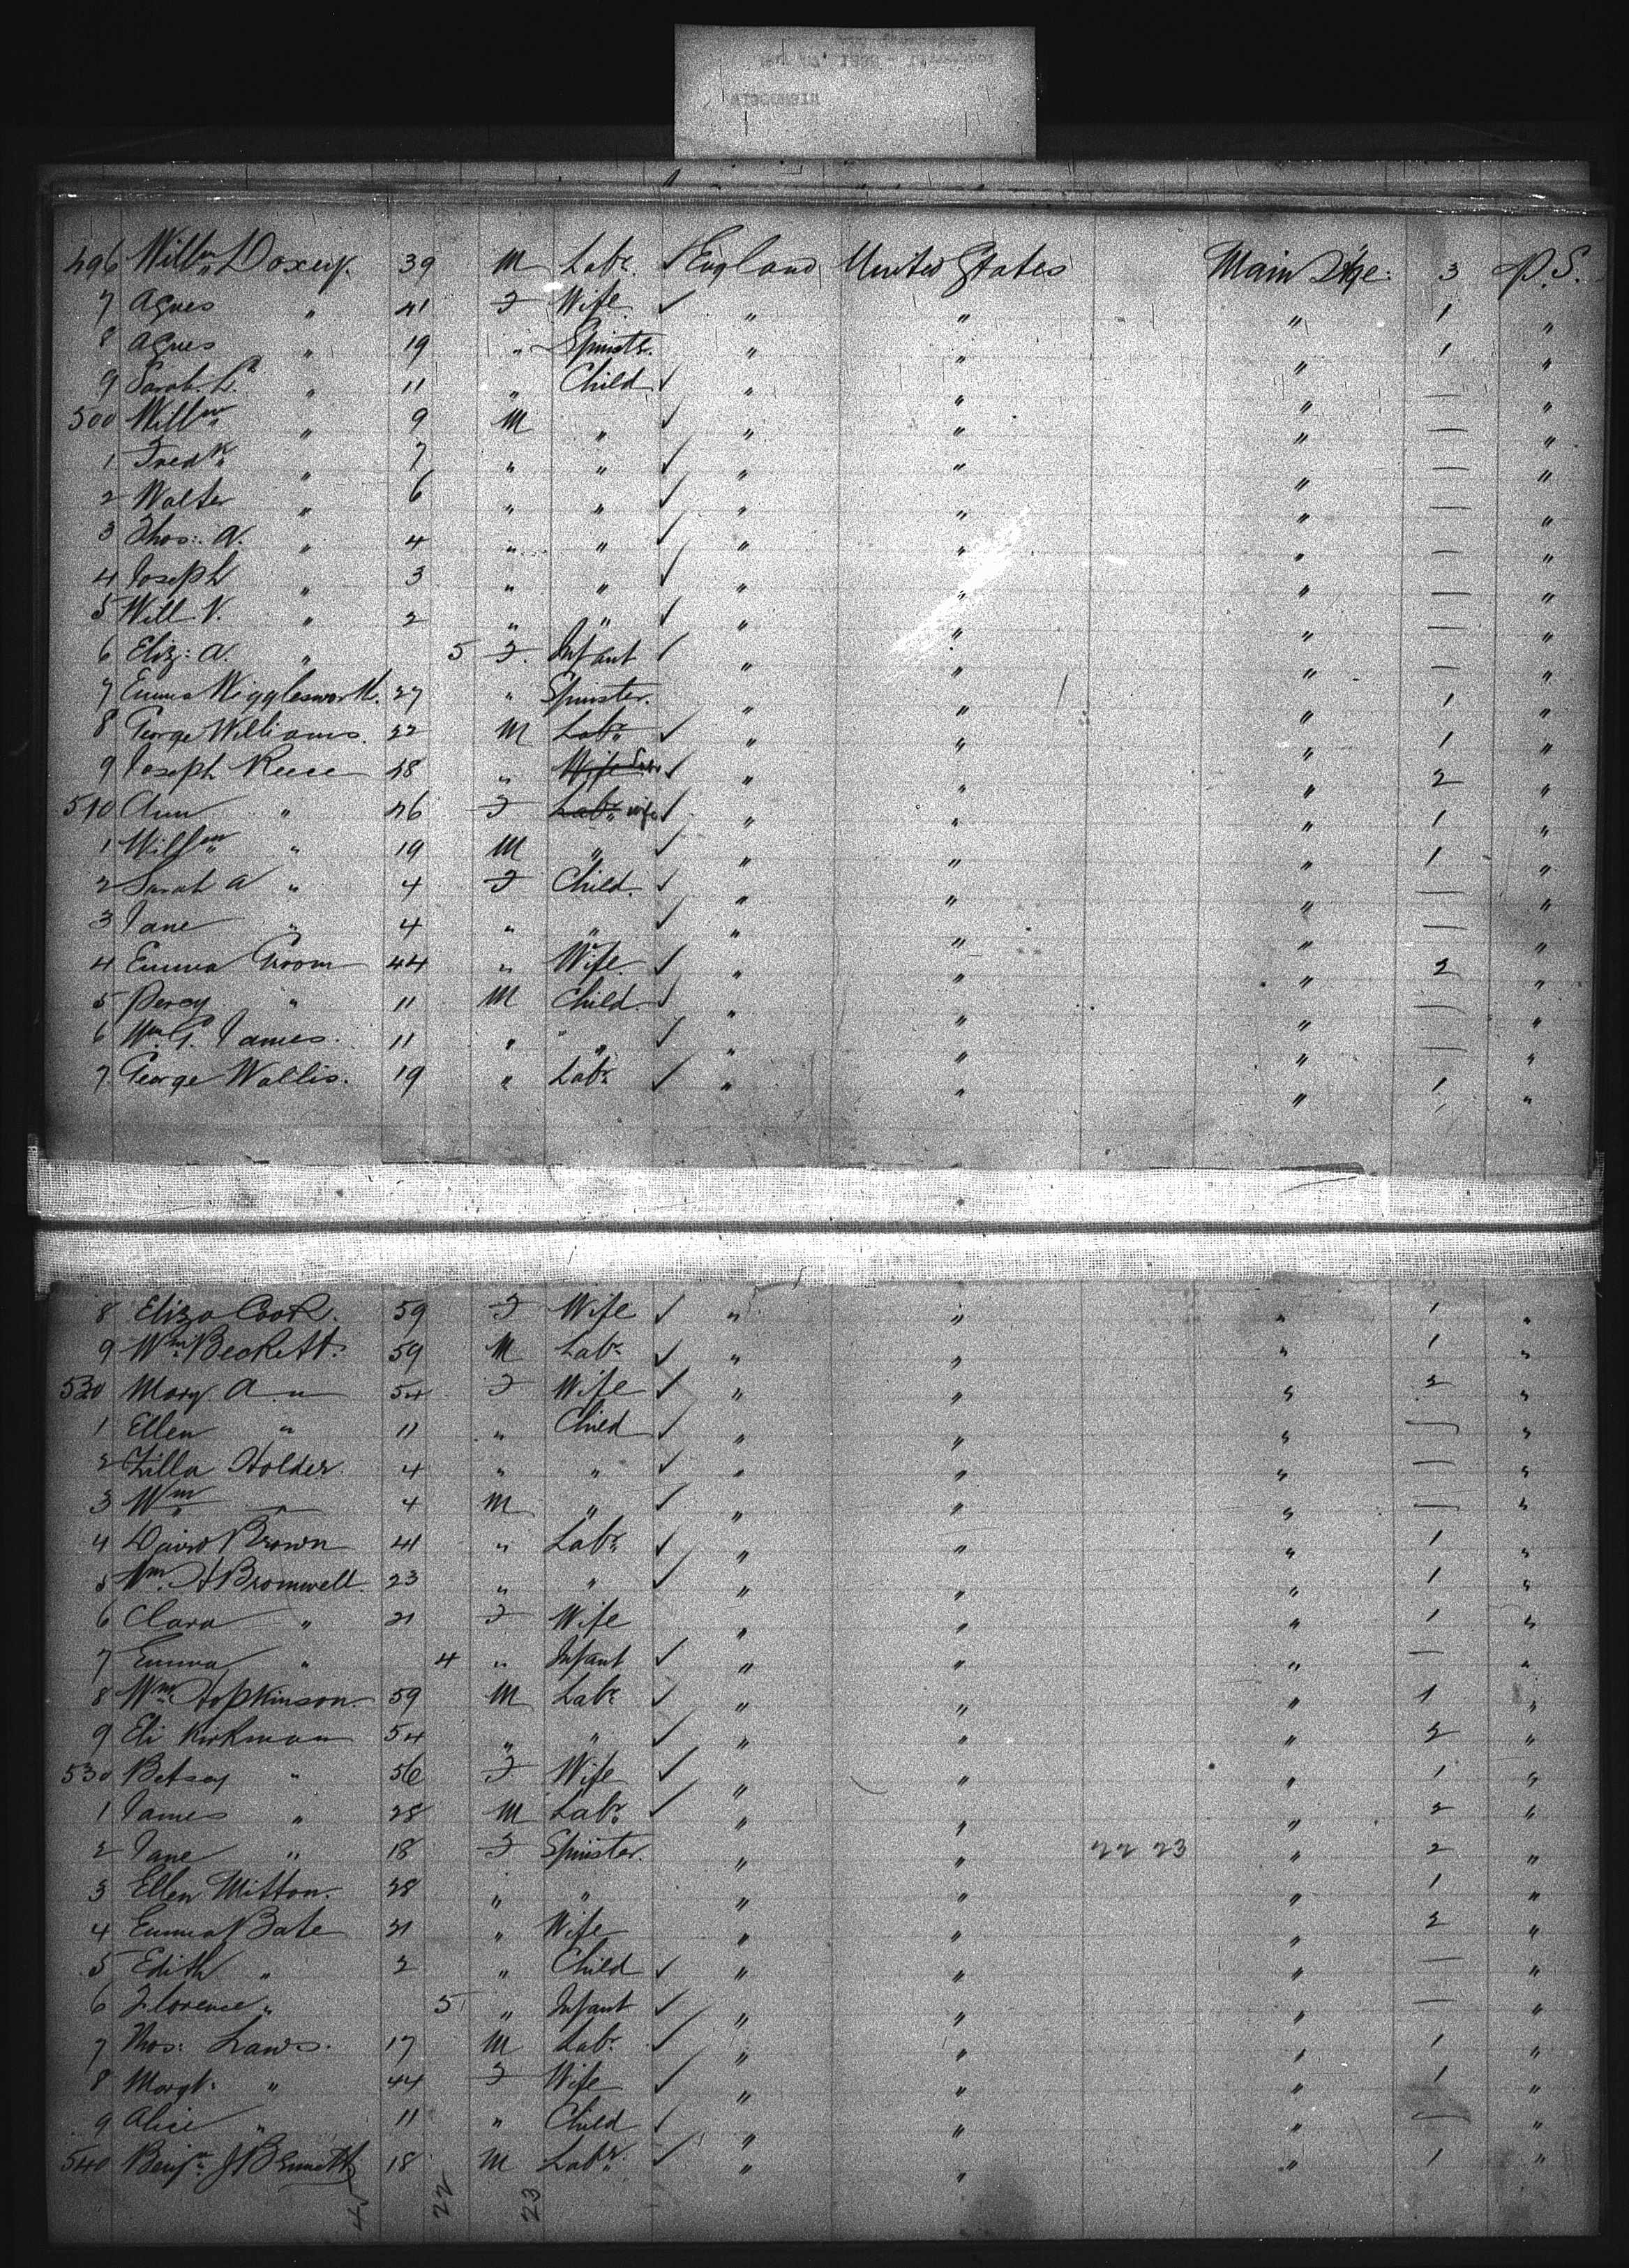 496 Willm Doxey. 39 M Labr. ✓ England United States Main Dge: 3 P.S.
7 Agnes " 41 F Wife. ✓ " " " 1 "
8 Agnes " 19 " Spinstr. " " " 1 "
9 Sarah. L. " 11 " Child ✓ " " " — "
500 Willm " 9 M " ✓ " " " — "
1 Fredk " 7 " " ✓ " " " — "
2 Walter " 6 " " ✓ " " " — "
3 Thos: A. " 4 " " ✓ " " " — "
4 Joseph " 3 " " ✓ " " " — "
5 Will. V. " 2 " " ✓ " " " — "
6 Eliz: A. " 5 F. Infant ✓ " " " — "
7 Emma Wigglesworth. 27 " Spinster. " " " 1 "
8 George Williams. 22 M Labr ✓ " " " 1 "
9 Joseph Reece 48 " Wife Labr ✓ " " " 2 "
510 Ann " 46 F Labr wife ✓ " " " 1 "
1 Willm " 19 M " ✓ " " " 1 "
2 Sarah A " 4 F Child. ✓ " " " — "
3 Jane " 4 " " ✓ " " " — "
4 Emma Groom 44 " Wife. ✓ " " " 2 "
5 Percy " 11 M Child. ✓ " " " — "
6 Wm. G. James. 11 " " ✓ " " " — "
7 George Wallis. 19 " Labr ✓ " " " 1 "
8 Eliza Cook. 59 F Wife ✓ " " " 1 "
9 Wm Beckett. 59 M Labr ✓ " " " 1 "
520 Mary. A " 54 F Wife ✓ " " " 2 "
1 Ellen " 11 " Child ✓ " " " — "
2 Zilla Holder. 4 " " ✓ " " " — "
3 Wm — 4 M " ✓ " " " — "
4 David Brown 41 " Labr ✓ " " " 1 "
5 Wm. H Bromwell. 23 " " ✓ " " " 1 "
6 Clara " 21 F Wife " " " 1 "
7 Emma " 4 " Infant ✓ " " " — "
8 Wm Hopkinson. 59 M Labr ✓ " " " 1 "
9 Eli Kirkman 54 " " ✓ " " " 2 "
530 Betsey " 56 F Wife ✓ " " " 1 "
1 James " 28 M Labr ✓ " " " 2 "
2 Jane " 18 F Spinster. " " 22 23 " 2 "
3 Ellen Mitton. 28 " " " " " 1 "
4 Emma Bate 21 " Wife " " " 2 "
5 Edith " 2 " Child ✓ " " " — "
6 Florence " 5 " Infant ✓ " " " — "
7 Thos: Laws. 17 M Labr. ✓ " " " 1 "
8 Margt. " 44 F Wife ✓ " " " 1 "
9 Alice " 11 " Child ✓ " " " — "
540 Benjn. J Bennett 18 M Labr. ✓ " " " 1 "
45 22 23